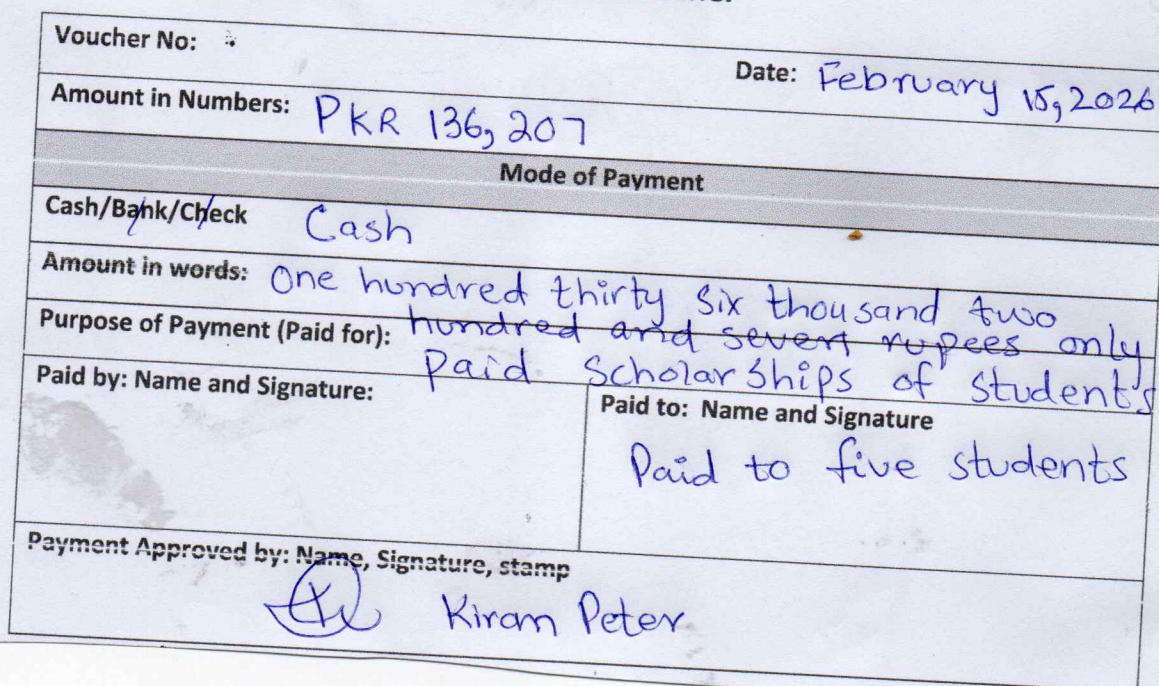 Voucher No:
Date: February 15, 2026
Amount in Numbers: PKR 136,207
Mode of Payment
Cash/Bank/Check Cash
Amount in words: One hundred thirty six thousand two
hundred and seven rupees only
Purpose of Payment (Paid for): Paid Scholarships of Students
Paid by: Name and Signature:
Paid to: Name and Signature
Paid to five students
Payment Approved by: Name, Signature, stamp
Kiram Peter